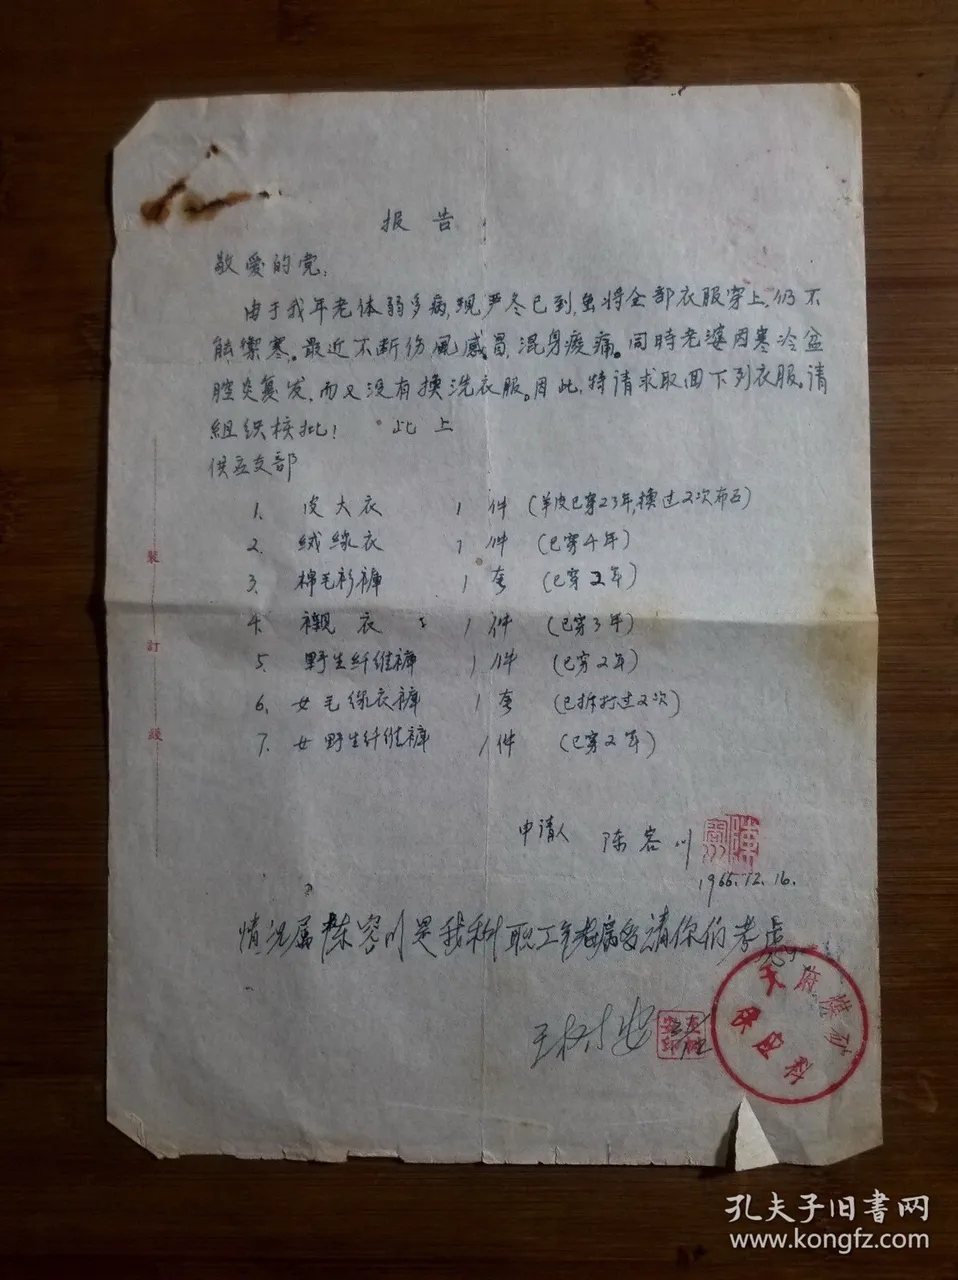 报告
敬爱的党：
由于我年老体弱多病，现严冬已到，虽将全部衣服穿上，仍不
能御寒。最近不断伤风感冒，混身痠痛。同时老婆因寒冷盆
腔炎复发，而又没有换洗衣服。因此，特请求取回下列衣服。请
组织核批！ 此上
供应支部
1、 皮大衣 1 件 （羊皮已穿23年，换过2次布面）
2、 绒線衣 1 件 （已穿4年）
3、 棉毛衫裤 1 套 （已穿2年）
4、 襯衣 1 件 （已穿3年）
5、 野生纤维裤 1 件 （已穿2年）
6、 女毛線衣裤 1 套 （已拆打过2次）
7、 女野生纤维裤 1 件 （已穿2年）
申请人 陈容川
1966.12.16.
情况属 陈容川是我科职工 请你们考虑
王树安
天府煤矿
供应科
装
订
线
孔夫子旧书网
www.kongfz.com